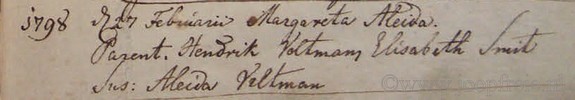 1798 d 27 Februarii Margareta Aleida.
Parent. Hendrik Voltmans Elisabeth Smit
Sus: Aleida Veltman